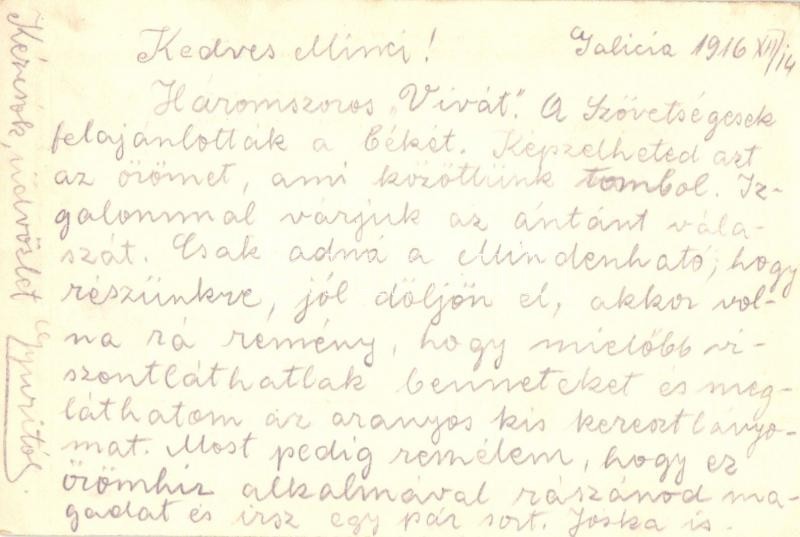 Kedves Minci! Galicia 1916 XII/14
Háromszoros „Vivát". A Szövetségesek
felajánlották a békét. Képzelheted azt
az örömet, ami közöttünk tombol. Iz-
galommal várjuk az ántánt vála-
szát. Csak adná a Mindenható, hogy
részünkre, jól dőljön el, akkor vol-
na rá remény, hogy mielőbb vi-
szontláthatlak benneteket és meg-
láthatom az aranyos kis keresztlányo-
mat. Most pedig remélem, hogy ez
örömhír alkalmával rászánod ma-
gadat és írsz egy pár sort. Jóska is.
üdvözlet Gyuritól.